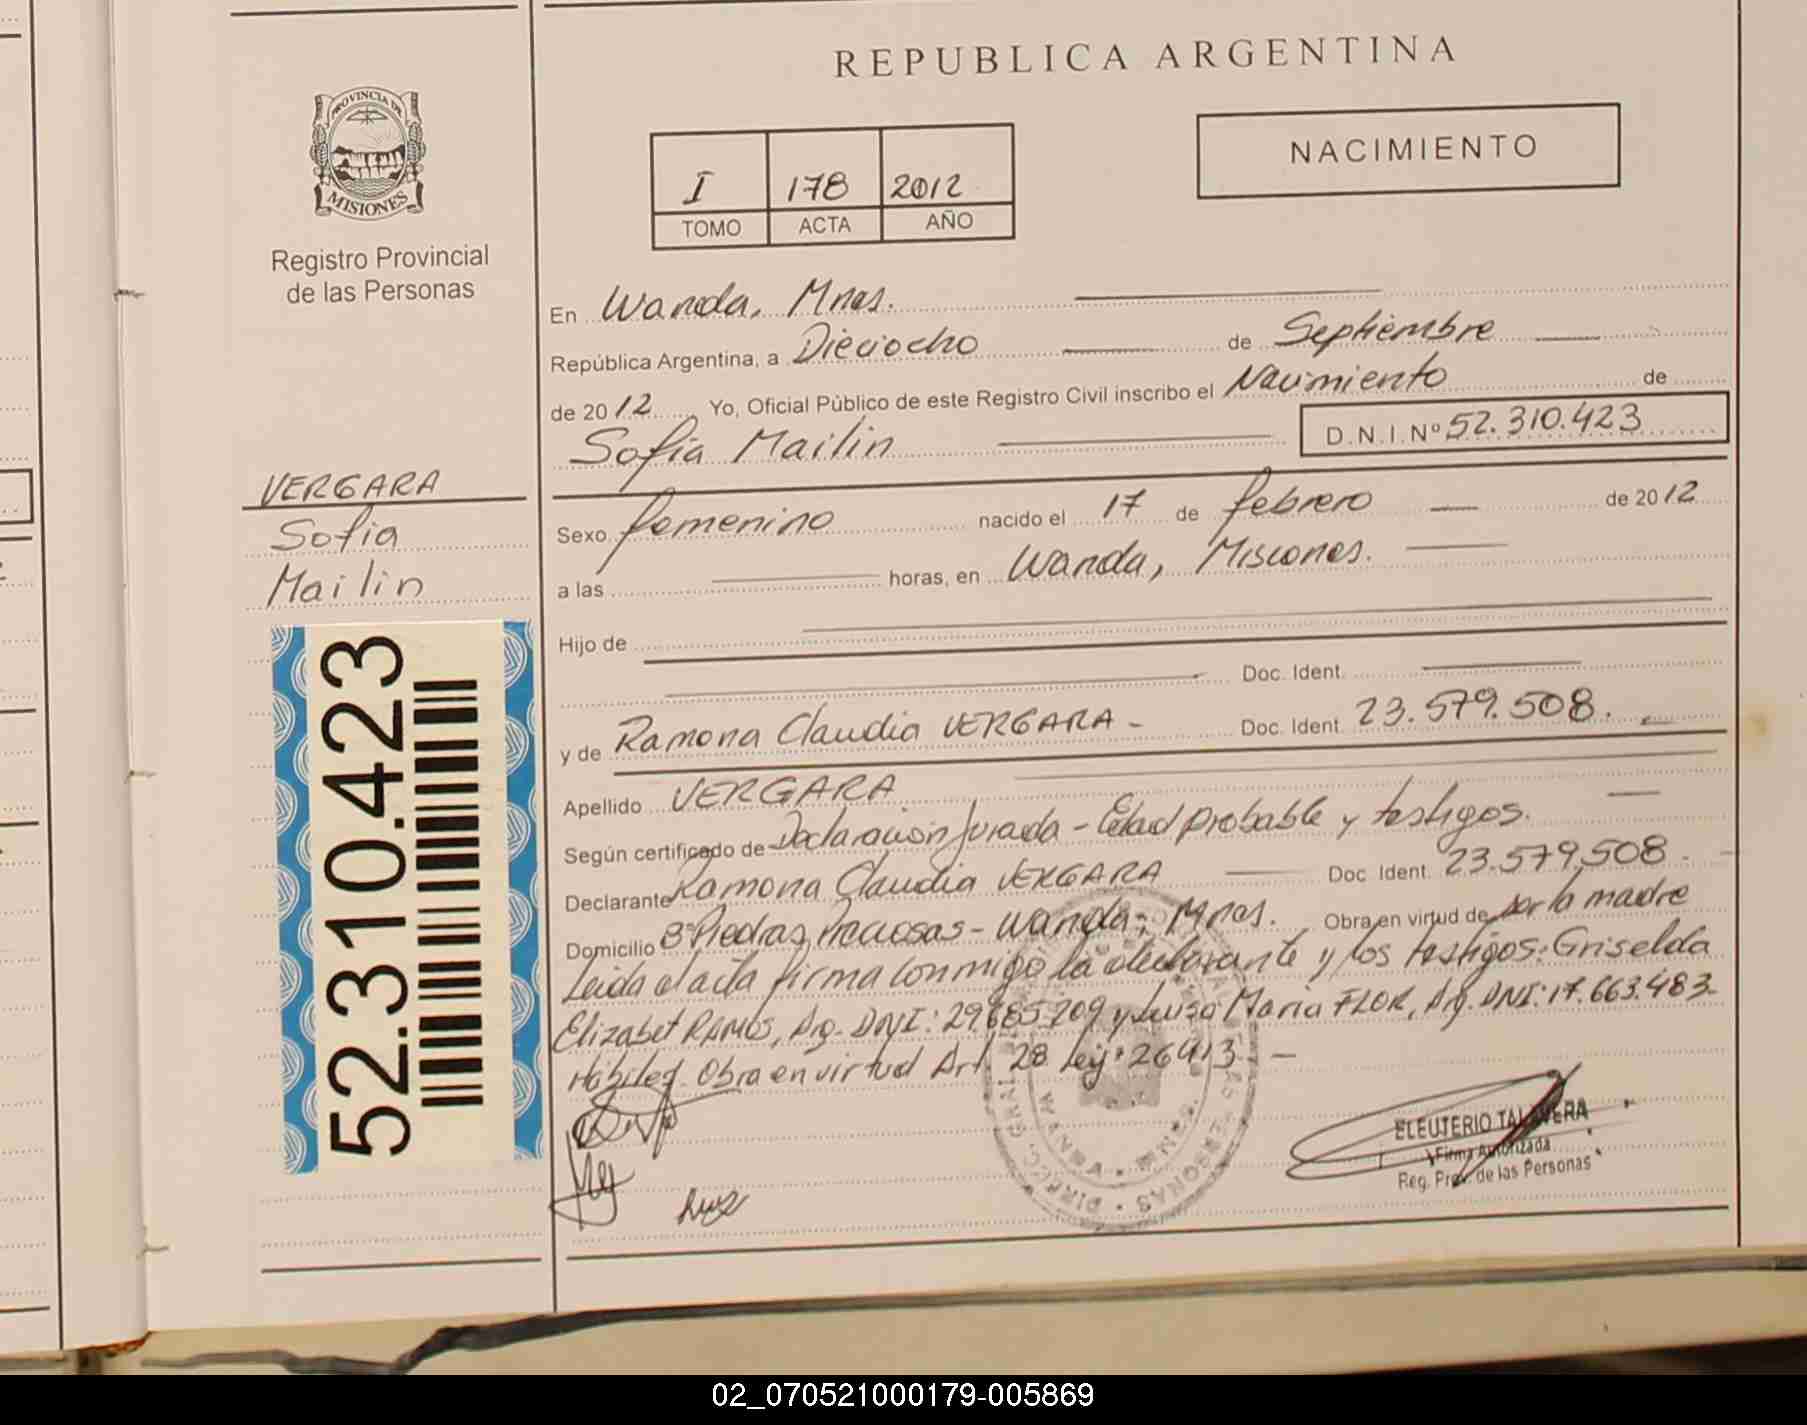 PROVINCIA DE
MISIONES
Registro Provincial
de las Personas
VERGARA
Sofia
Mailin
52.310.423
REPUBLICA ARGENTINA
NACIMIENTO
I 178 2012
TOMO ACTA AÑO
En Wanda, Mnes.
República Argentina, a Dieciocho de Septiembre
de 2012 Yo, Oficial Público de este Registro Civil inscribo el Nacimiento de
Sofia Mailin D.N.I.Nº 52.310.423
Sexo femenino nacido el 17 de febrero de 2012
a las horas, en Wanda, Misiones.
Hijo de
Doc. Ident.
y de Ramona Claudia VERGARA - Doc. Ident. 23.579.508.
Apellido VERGARA
Según certificado de Declaración Jurada - Edad probable y testigos.
Declarante Ramona Claudia VERGARA Doc Ident. 23.579.508.
Domicilio Bº Piedras Preciosas - Wanda; Mnes. Obra en virtud de por la madre
Leida el acta firma conmigo la declarante y los testigos: Griselda
Elizabet RAMOS, Arg. DNI: 29.685.209 y Luisa Maria FLOR, Arg. DNI: 17.663.483-
Hábiles. Obra en virtud Art. 28 Ley: 26413 -
ELEUTERIO TALAVERA
Firma Autorizada
Reg. Prov. de las Personas
02_070521000179-005869